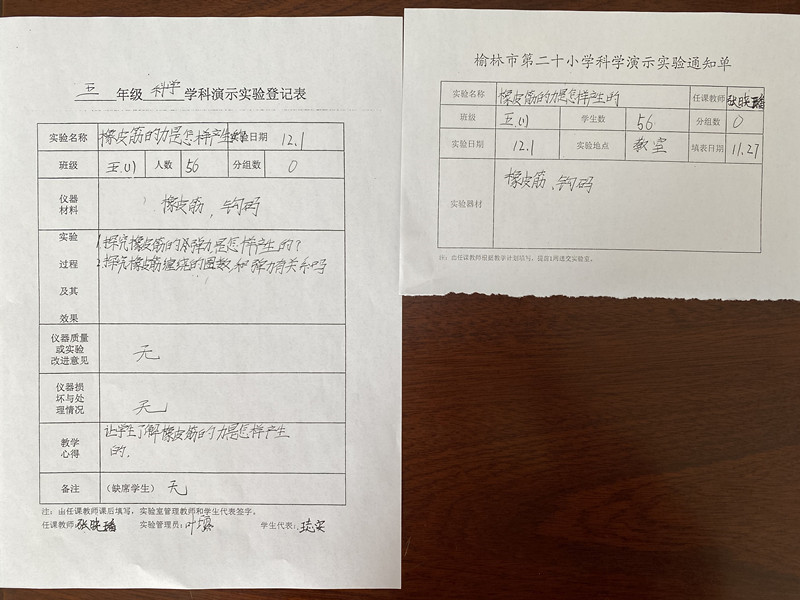 五 年级 科学 学科演示实验登记表
实验名称 橡皮筋的力是怎样产生的 实验日期 12.1
班级 五(1) 人数 56 分组数 0
仪器
材料
橡皮筋、钩码
实验
过程
及其
效果
1.探究橡皮筋的弹力是怎样产生的?
2.探究橡皮筋缠绕的圈数和弹力有关系吗
仪器质量
或实验
改进意见
无
仪器损
坏与处
理情况
无
教学
心得
让学生了解橡皮筋的力是怎样产生
的。
备注 (缺席学生) 无
注:由任课教师课后填写,实验室管理教师和学生代表签字。
任课教师: 张 实验管理员: 叶 学生代表:
榆林市第二十小学科学演示实验通知单
实验名称 橡皮筋的力是怎样产生的 任课教师 张
班级 五(1) 学生数 56 分组数 0
实验日期 12.1 实验地点 教室 填表日期 11.27
实验器材 橡皮筋、钩码
注:由任课教师根据教学计划填写,提前1周送交实验室。